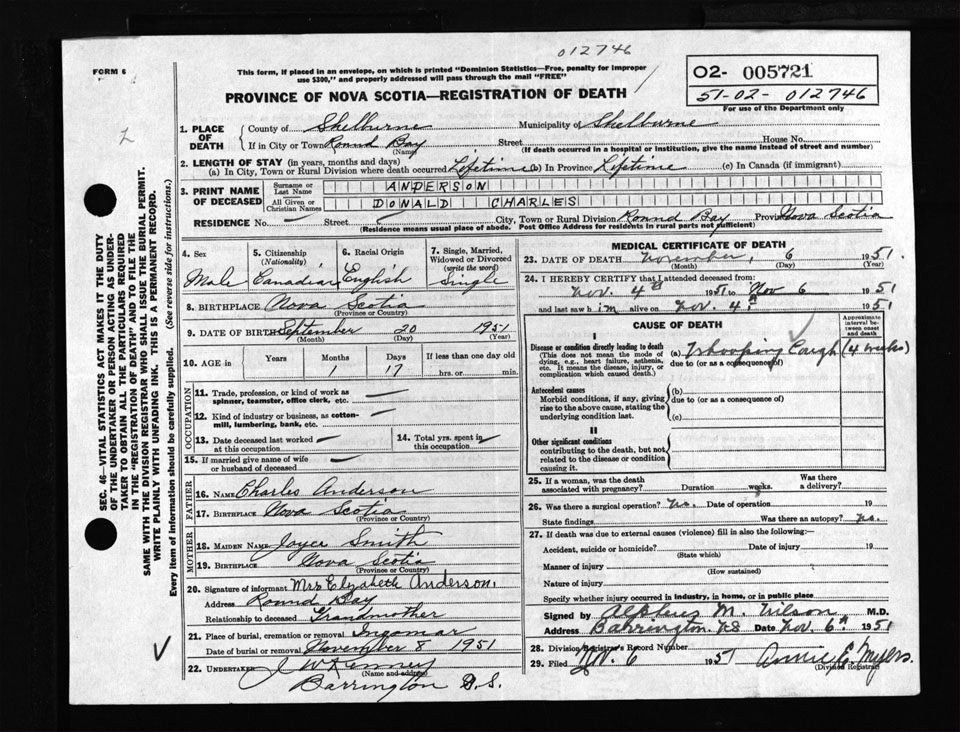 012746
FORM 6
This form, if placed in an envelope, on which is printed "Dominion Statistics—Free, penalty for improper
use $300," and properly addressed will pass through the mail "FREE"
02- 005721
51-02- 012746
For use of the Department only
PROVINCE OF NOVA SCOTIA—REGISTRATION OF DEATH
SEC. 46—VITAL STATISTICS ACT MAKES IT THE DUTY
OF THE UNDERTAKER OR PERSON ACTING AS UNDER-
TAKER TO OBTAIN ALL THE PARTICULARS REQUIRED
IN THE "REGISTRATION OF DEATH" AND TO FILE THE
SAME WITH THE DIVISION REGISTRAR WHO SHALL ISSUE THE BURIAL PERMIT.
WRITE PLAINLY WITH UNFADING INK. THIS IS A PERMANENT RECORD.
Every item of information should be carefully supplied. (See reverse side for instructions.)
1. PLACE OF DEATH
County of Shelburne Municipality of Shelburne
If in City or Town Round Bay Street House No.
(Name) (If death occurred in a hospital or institution, give the name instead of street and number)
2. LENGTH OF STAY (in years, months and days)
(a) In City, Town or Rural Division where death occurred Lifetime (b) In Province Lifetime (c) In Canada (if immigrant)
3. PRINT NAME OF DECEASED
Surname or Last Name ANDERSON
All Given or Christian Names DONALD CHARLES
RESIDENCE No. — Street — City, Town or Rural Division Round Bay Province Nova Scotia
(Residence means usual place of abode. Post Office Address for residents in rural parts not sufficient)
4. Sex Male
5. Citizenship (Nationality) Canadian
6. Racial Origin English
7. Single, Married, Widowed or Divorced (write the word) Single
8. BIRTHPLACE Nova Scotia
(Province or Country)
9. DATE OF BIRTH September 20 1951
(Month) (Day) (Year)
10. AGE in Years Months 1 Days 17 If less than one day old hrs. or min.
OCCUPATION
11. Trade, profession, or kind of work as
spinner, teamster, office clerk, etc. —
12. Kind of industry or business, as cotton-
mill, lumbering, bank, etc. —
13. Date deceased last worked at this occupation —
14. Total yrs. spent in this occupation —
15. If married give name of wife or husband of deceased —
FATHER
16. NAME Charles Anderson
17. BIRTHPLACE Nova Scotia
(Province or Country)
MOTHER
18. MAIDEN NAME Joyce Smith
19. BIRTHPLACE Nova Scotia
(Province or Country)
20. Signature of informant Mrs Elyzabeth Anderson.
Address Round Bay
Relationship to deceased Grandmother
21. Place of burial, cremation or removal Ingomar
Date of burial or removal November 8 1951
22. UNDERTAKER
(Name and address)
Barrington
MEDICAL CERTIFICATE OF DEATH
23. DATE OF DEATH November, 6 1951.
(Month) (Day) (Year)
24. I HEREBY CERTIFY that I attended deceased from:
Nov. 4th 1951 to Nov 6 1951
and last saw him alive on Nov. 4th 1951
CAUSE OF DEATH
Approximate interval between onset and death
I
Disease or condition directly leading to death
(This does not mean the mode of
dying, e.g., heart failure, asthenia,
etc. It means the disease, injury, or
complication which caused death.)
(a) Whooping Cough (4 weeks)
due to (or as a consequence of)
Antecedent causes
Morbid conditions, if any, giving
rise to the above cause, stating the
underlying condition last.
(b)
due to (or as a consequence of)
(c)
II
Other significant conditions
contributing to the death, but not
related to the disease or condition
causing it.
25. If a woman, was the death
associated with pregnancy? Duration weeks. Was there a delivery?
26. Was there a surgical operation? No. Date of operation 19
State findings Was there an autopsy? No.
27. If death was due to external causes (violence) fill in also the following:—
Accident, suicide or homicide? Date of injury 19
(State which)
Manner of injury
(How sustained)
Nature of injury
Specify whether injury occurred in industry, in home, or in public place
Signed by Alpheus M. Wilson M.D.
Address Barrington. NS Date Nov. 6th 1951
28. Division Registrar's Record Number
29. Filed Nov. 6 1951 Annie E. Myers.
(Division Registrar)